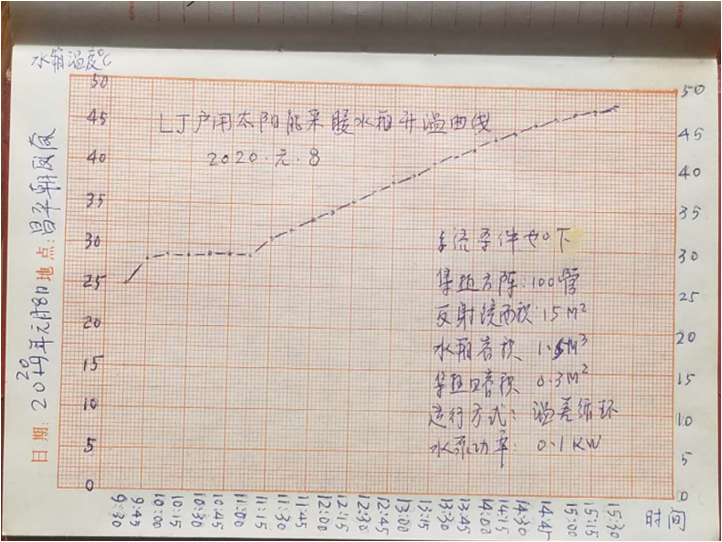 水箱温度℃
50
45
40
35
30
25
20
15
10
5
0
LJ户用太阳能采暖水箱升温曲线
2020.元.8
系统条件如下
集热方阵:100管
反射镜面积:15M²
水箱容积 1.5M³
集热口容积 0.3M²
运行方式: 温差循环
水泵功率: 0.1KW
50
45
40
35
30
25
20
15
10
5
0
9:30 9:45 10:00 10:15 10:30 10:45 11:00 11:15 11:30 11:45 12:00 12:15 12:30 12:45 13:00 13:15 13:30 13:45 14:00 14:15 14:30 14:45 15:00 15:15 15:30 时间
日期: 2020年元月8日 地点: 昌平朝凤庵